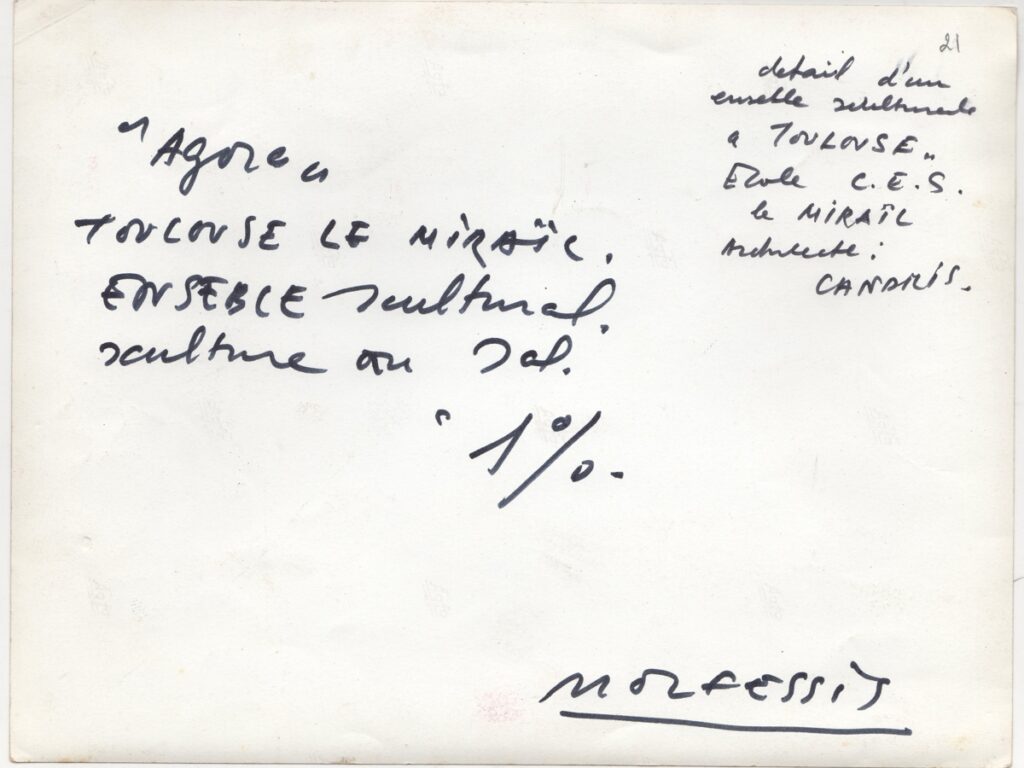 21
detail d'un
enseble scultural
a TOULOUSE..
Ecole C.E.S.
le MIRAÏL
Architecte :
CANDILIS.
"Agora"
TOULOUSE LE MIRAÏL.
ENSEBLE scultural.
sculture au Sol.
1%.
MORFESSIS